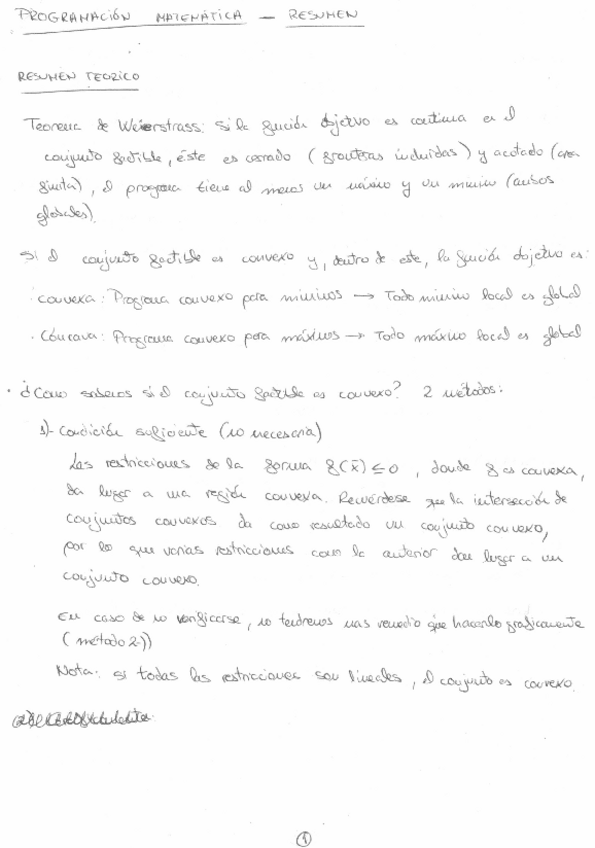 PROGRAMACIÓN MATEMÁTICA — RESUMEN
RESUMEN TEÓRICO
Teorema de Weierstrass: si la función objetivo es continua en el
conjunto factible, éste es cerrado (fronteras incluidas) y acotado (área
finita), el programa tiene al menos un máximo y un mínimo (ambos
globales).
Si el conjunto factible es convexo y, dentro de este, la función objetivo es:
· convexa: Programa convexo para mínimos → Todo mínimo local es global
· Cóncava: Programa convexo para máximos → Todo máximo local es global
· ¿Cómo sabemos si el conjunto factible es convexo? 2 métodos:
1)- Condición suficiente (no necesaria)
Las restricciones de la forma f(x̄) ≤ 0, donde f es convexa,
da lugar a una región convexa. Recuérdese que la intersección de
conjuntos convexos da como resultado un conjunto convexo,
por lo que varias restricciones como la anterior dan lugar a un
conjunto convexo.
En caso de no verificarse, no tendremos más remedio que hacerlo gráficamente
(método 2-))
Nota: si todas las restricciones son lineales, el conjunto es convexo.
1